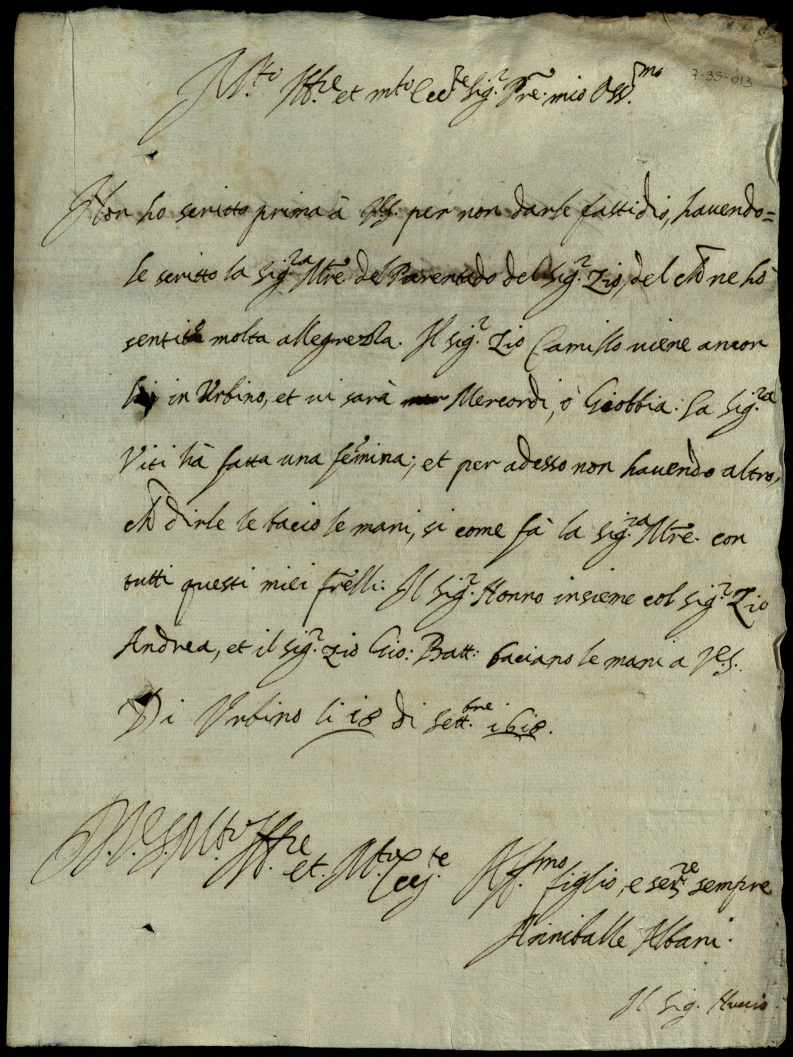 7-39-013
M.to Ill.re et m.to Ecc.te Sig.r P̃re mio Oss.mo
Non ho scritto prima à V.S. per non darle fastidio, hauendo=
le scritto la Sig.ra M̃re del Parentado del Sig.r Zio, del ch̃ ne hò
sentito molta allegrezza. Il Sig.r Zio Camillo uiene ancor
lui in Urbino, et ui sarà Mercordi, ò Giobbia: La Sig.ra
Viti hà fatta una fem̃ina; et per adesso non hauendo altro,
ch̃ dirle le bacio le mani, si come fà la Sig.ra M̃re con
tutti questi miei fr̃elli: Il Sig.r Nonno insieme col Sig.r Zio
Andrea, et il Sig.r Zio Gio: Batt: baciano le mani a V.S.
Di Urbino li 18 di Sett.bre 1618.
Di V.S. M.to Ill.re et M.to Ecc.te Aff.mo figlio, e ser.re sempre
Anniballe Albani.
Il Sig.